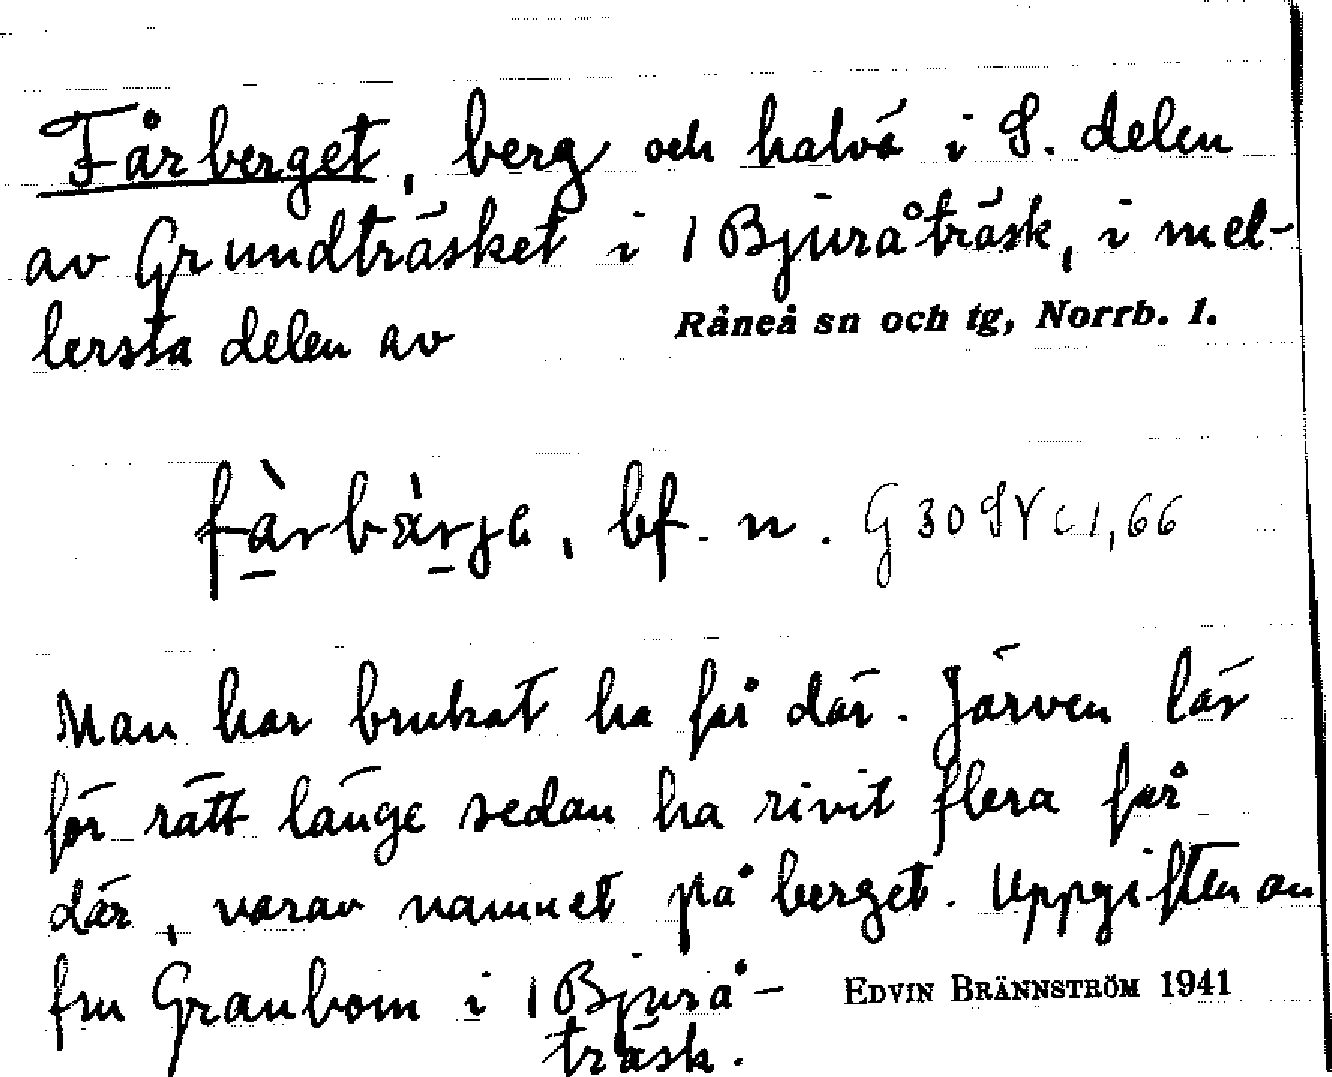 Fårberget, berg och halvö i S. delen
av Grundträsket i 1 Bjuråträsk, i mel-
lersta delen av Råneå sn och tg, Norrb. l.
bf. n.
Man har brukat ha får där. Järven lär
för rätt länge sedan ha rivit flera får
där, varav namnet på berget. Uppgiften av
fru Granbom i 1 Bjurå- EDVIN BRÄNNSTRÖM 1941
träsk.